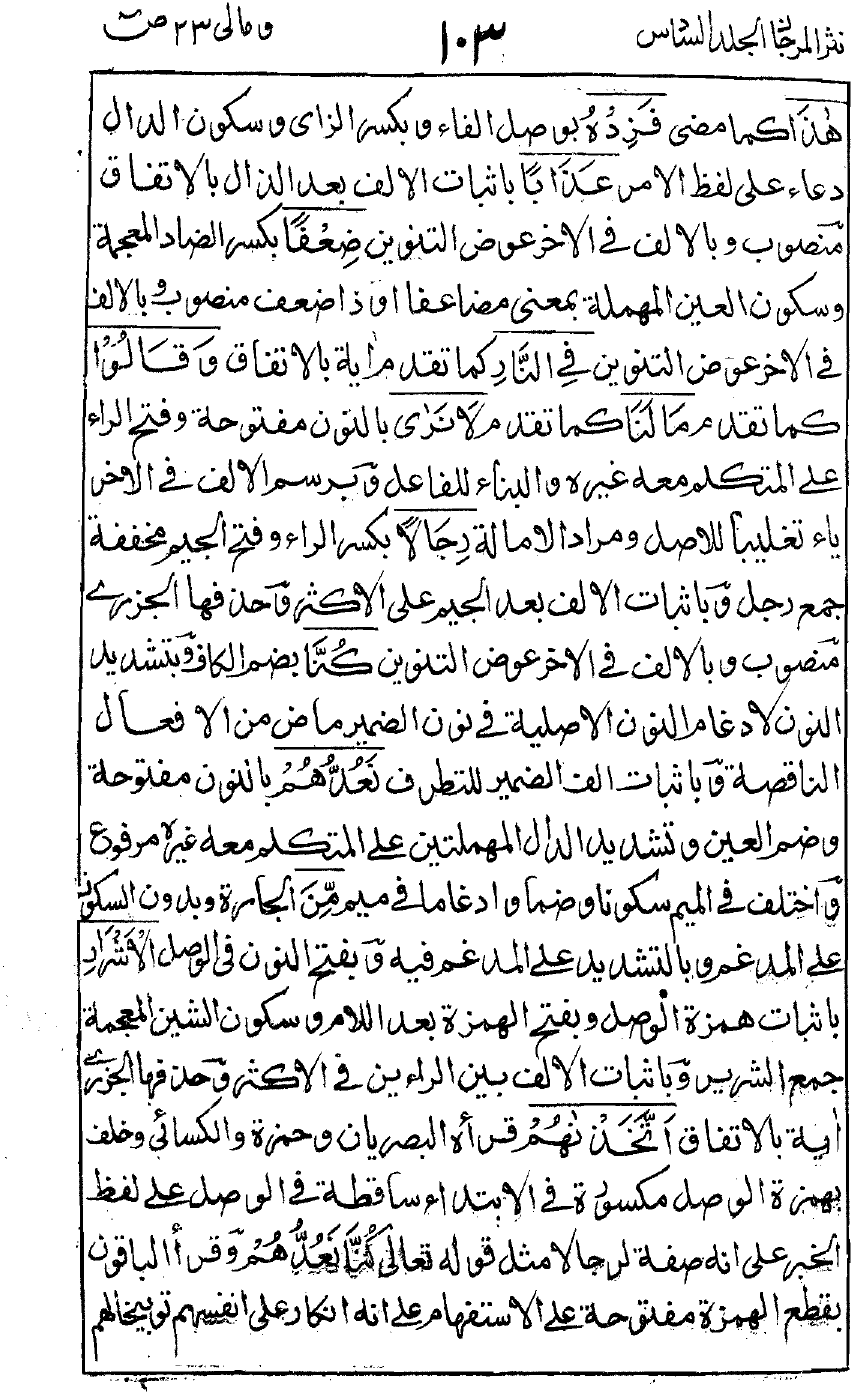 نثر المرجان الجلد السادس ١٠٣ ومالى ٢٣ ص
هٰذَا كما مضى فَزِدْهُ بوصل الفاء و بكسر الزاى و سكون الدال
دعاء على لفظ الامر عَذَابًا باثبات الالف بعد الذال بالاتفاق
منصوب و بالالف فى الاخر عوض التنوين ضِعْفًا بكسر الضاد المعجمة
و سكون العين المهملة بمعنى مضاعفا او ذا ضعف منصوب و بالالف
فى الاخر عوض التنوين فِي النَّارِ كما تقدم اٰية بالاتفاق وَقَالُوْا
كما تقدم مَا لَنَا كما تقدم لَا نَرٰى بالنون مفتوحة و فتح الراء
على المتكلم معه غيره و البناء للفاعل و برسم الالف فى الاخر
ياء تغليبا للاصل و مراد الامالة رِجَالًا بكسر الراء و فتح الجيم مخففة
جمع رجل و باثبات الالف بعد الجيم على الاكثر و حذفها الجزرى
منصوب و بالالف فى الاخر عوض التنوين كُنَّا بضم الكاف و بتشديد
النون لادغام النون الاصلية فى نون الضمير ماض من الافعال
الناقصة و باثبات الف الضمير للتطرف نَعُدُّهُمْ بالنون مفتوحة
و ضم العين و تشديد الدال المهملتين على المتكلم معه غيره مرفوع
و اختلف فى الميم سكونا و ضما و ادغاما فى ميم مِّنَ الجارة و بدون السكون
على المدغم و بالتشديد على المدغم فيه و بفتح النون فى الوصل الْاَشْرَارِ
باثبات همزة الوصل و بفتح الهمزة بعد اللام و سكون الشين المعجمة
جمع الشرير و باثبات الالف بين الراءين فى الاكثر و حذفها الجزرى
اٰية بالاتفاق اَتَّخَذْنٰهُمْ قرأه البصريان و حمزة و الكسائى و خلف
بهمزة الوصل مكسورة فى الابتداء ساقطة فى الوصل على لفظ
الخبر على انه صفة لرجالا مثل قوله تعالى كُنَّا نَعُدُّهُمْ و قرأ الباقون
بقطع الهمزة مفتوحة على الاستفهام على انه انكار على انفسهم توبيخا لهم